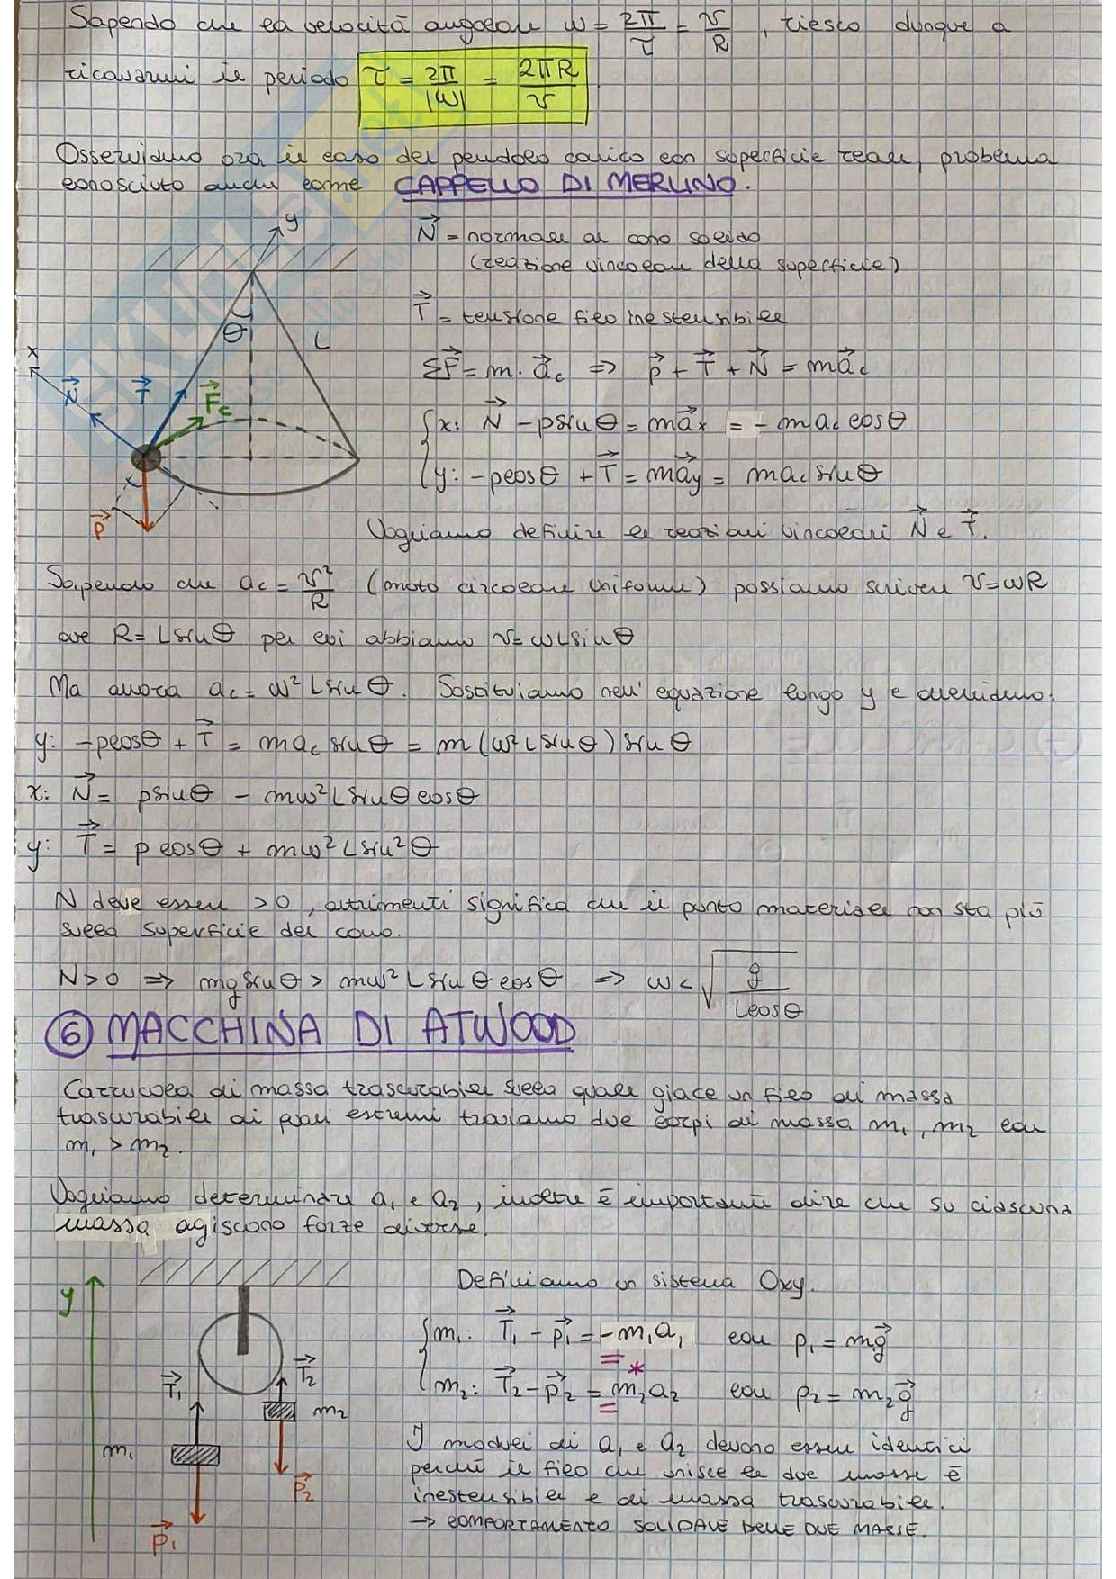 Sapendo che la velocità angolare ω = 2π/τ = v/R , riesco dunque a
ricavarmi il periodo τ = 2π/|ω| = 2πR/v
Osserviamo ora il caso del pendolo conico con superficie reale, problema
conosciuto anche come CAPPELLO DI MERLINO.
y
N⃗ = normale al cono solido
(reazione vincolare della superficie)
T⃗ = tensione filo inestensibile
θ
L
x
N⃗ T⃗ F⃗c
P⃗
ΣF⃗ = m · a⃗c ⇒ p⃗ + T⃗ + N⃗ = ma⃗c
x: N⃗ - psinθ = ma⃗x = - mac cosθ
y: -pcosθ + T⃗ = ma⃗y = mac sinθ
Vogliamo definire le reazioni vincolari N⃗ e T⃗.
Sapendo che ac = v²/R (moto circolare uniforme) possiamo scrivere v=ωR
ove R = L sinθ per cui abbiamo v= ωLsinθ
Ma allora ac = ω² L sinθ. Sostituiamo nell'equazione lungo y e avremo:
y: -pcosθ + T⃗ = mac sinθ = m (ω² L sinθ) sinθ
x: N⃗ = psinθ - mω² L sinθ cosθ
y: T⃗ = p cosθ + mω² L sin²θ
N deve essere >0, altrimenti significa che il punto materiale non sta più
sulla superficie del cono.
N>0 ⇒ mg sinθ > mω² L sinθ cosθ ⇒ ω < √(g/Lcosθ)
⑥ MACCHINA DI ATWOOD
Carrucola di massa trascurabile sulla quale giace un filo di massa
trascurabile ai quali estremi troviamo due corpi di massa m₁, m₂ con
m₁ > m₂.
Vogliamo determinare a₁ e a₂, inoltre è importante dire che su ciascuna
massa agiscono forze diverse.
y
T⃗₁ T⃗₂
m₂
m₁
P⃗₂
P⃗₁
Definiamo un sistema Oxy.
m₁: T⃗₁ - p⃗₁ = -m₁a₁ con p₁ = mg⃗
*
m₂: T⃗₂ - p⃗₂ = m₂a₂ con p₂ = m₂g⃗
I moduli di a₁ e a₂ devono essere identici
perché il filo che unisce le due masse è
inestensibile e di massa trascurabile.
→ COMPORTAMENTO SOLIDALE DELLE DUE MASSE.